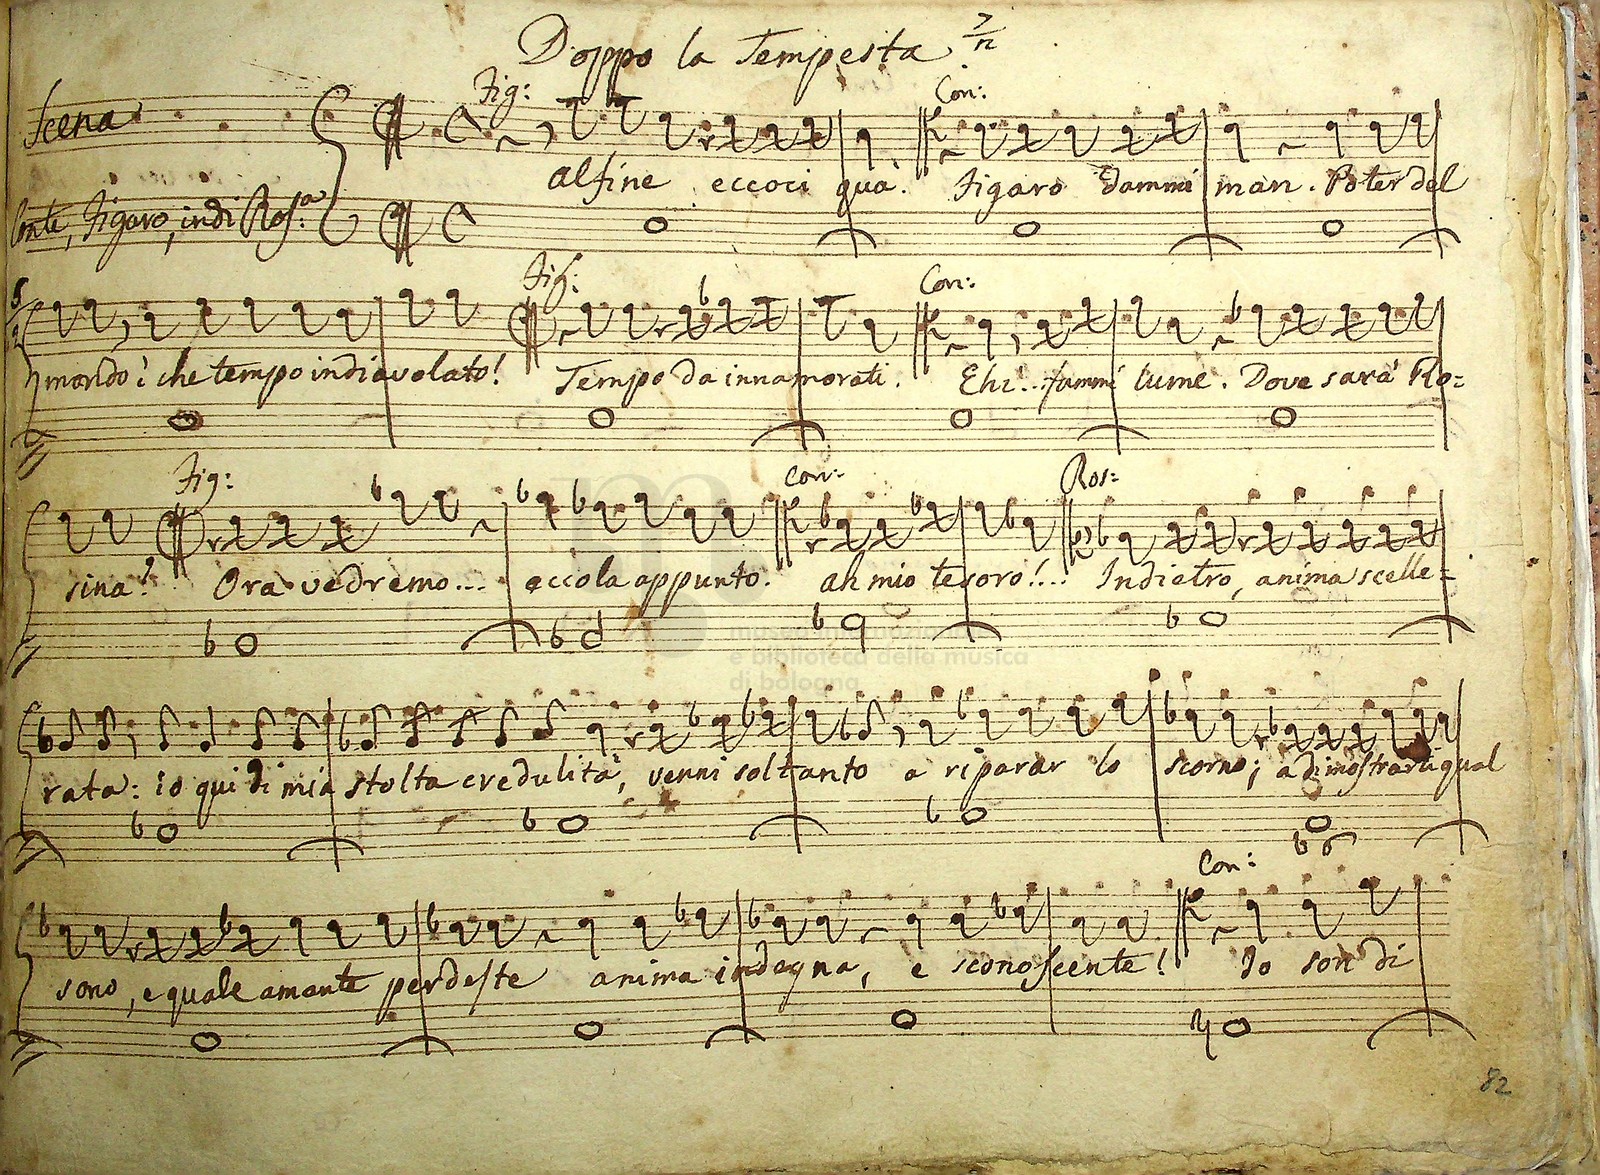 Doppo la Tempesta
Scena
Fig: Con:
alfine eccoci quà. Figaro dammi man. Poter del
Conte, Figaro, indi Ros.a
Fig: Con:
mondo! che tempo indiavolato! Tempo da innamorati. Ehi... fammi lume. Dove sarà Ro=
Fig: Con: Ros:
sina? Ora vedremo... eccola appunto. ah mio tesoro!... Indietro, anima scelle=
museo internazionale
e biblioteca della musica
di bologna
rata: io qui di mia stolta credulità, venni soltanto a riparar lo scorno; a dimostrarti qual
Con:
sono, e quale amante perdeste anima indegna, e sconoscente! Io son di
82